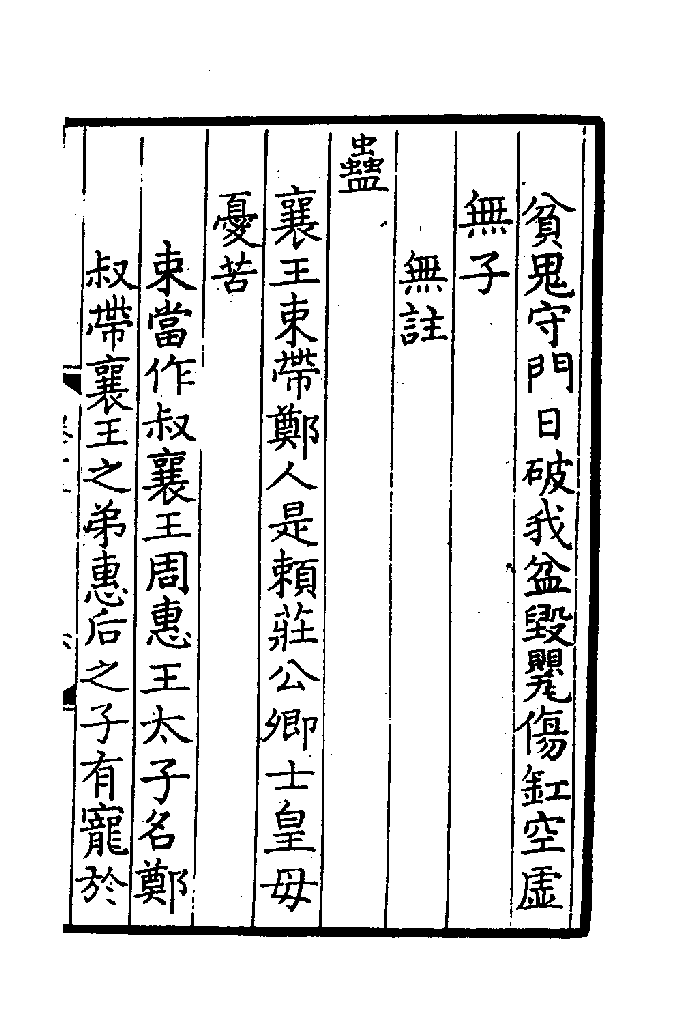 貧鬼守門日破我盆毀甖傷缸空虛
無子
無註
蠱
襄王束帶鄭人是賴莊公卿士皇母
憂苦
束當作叔襄王周惠王太子名鄭
叔帶襄王之弟惠后之子有寵於